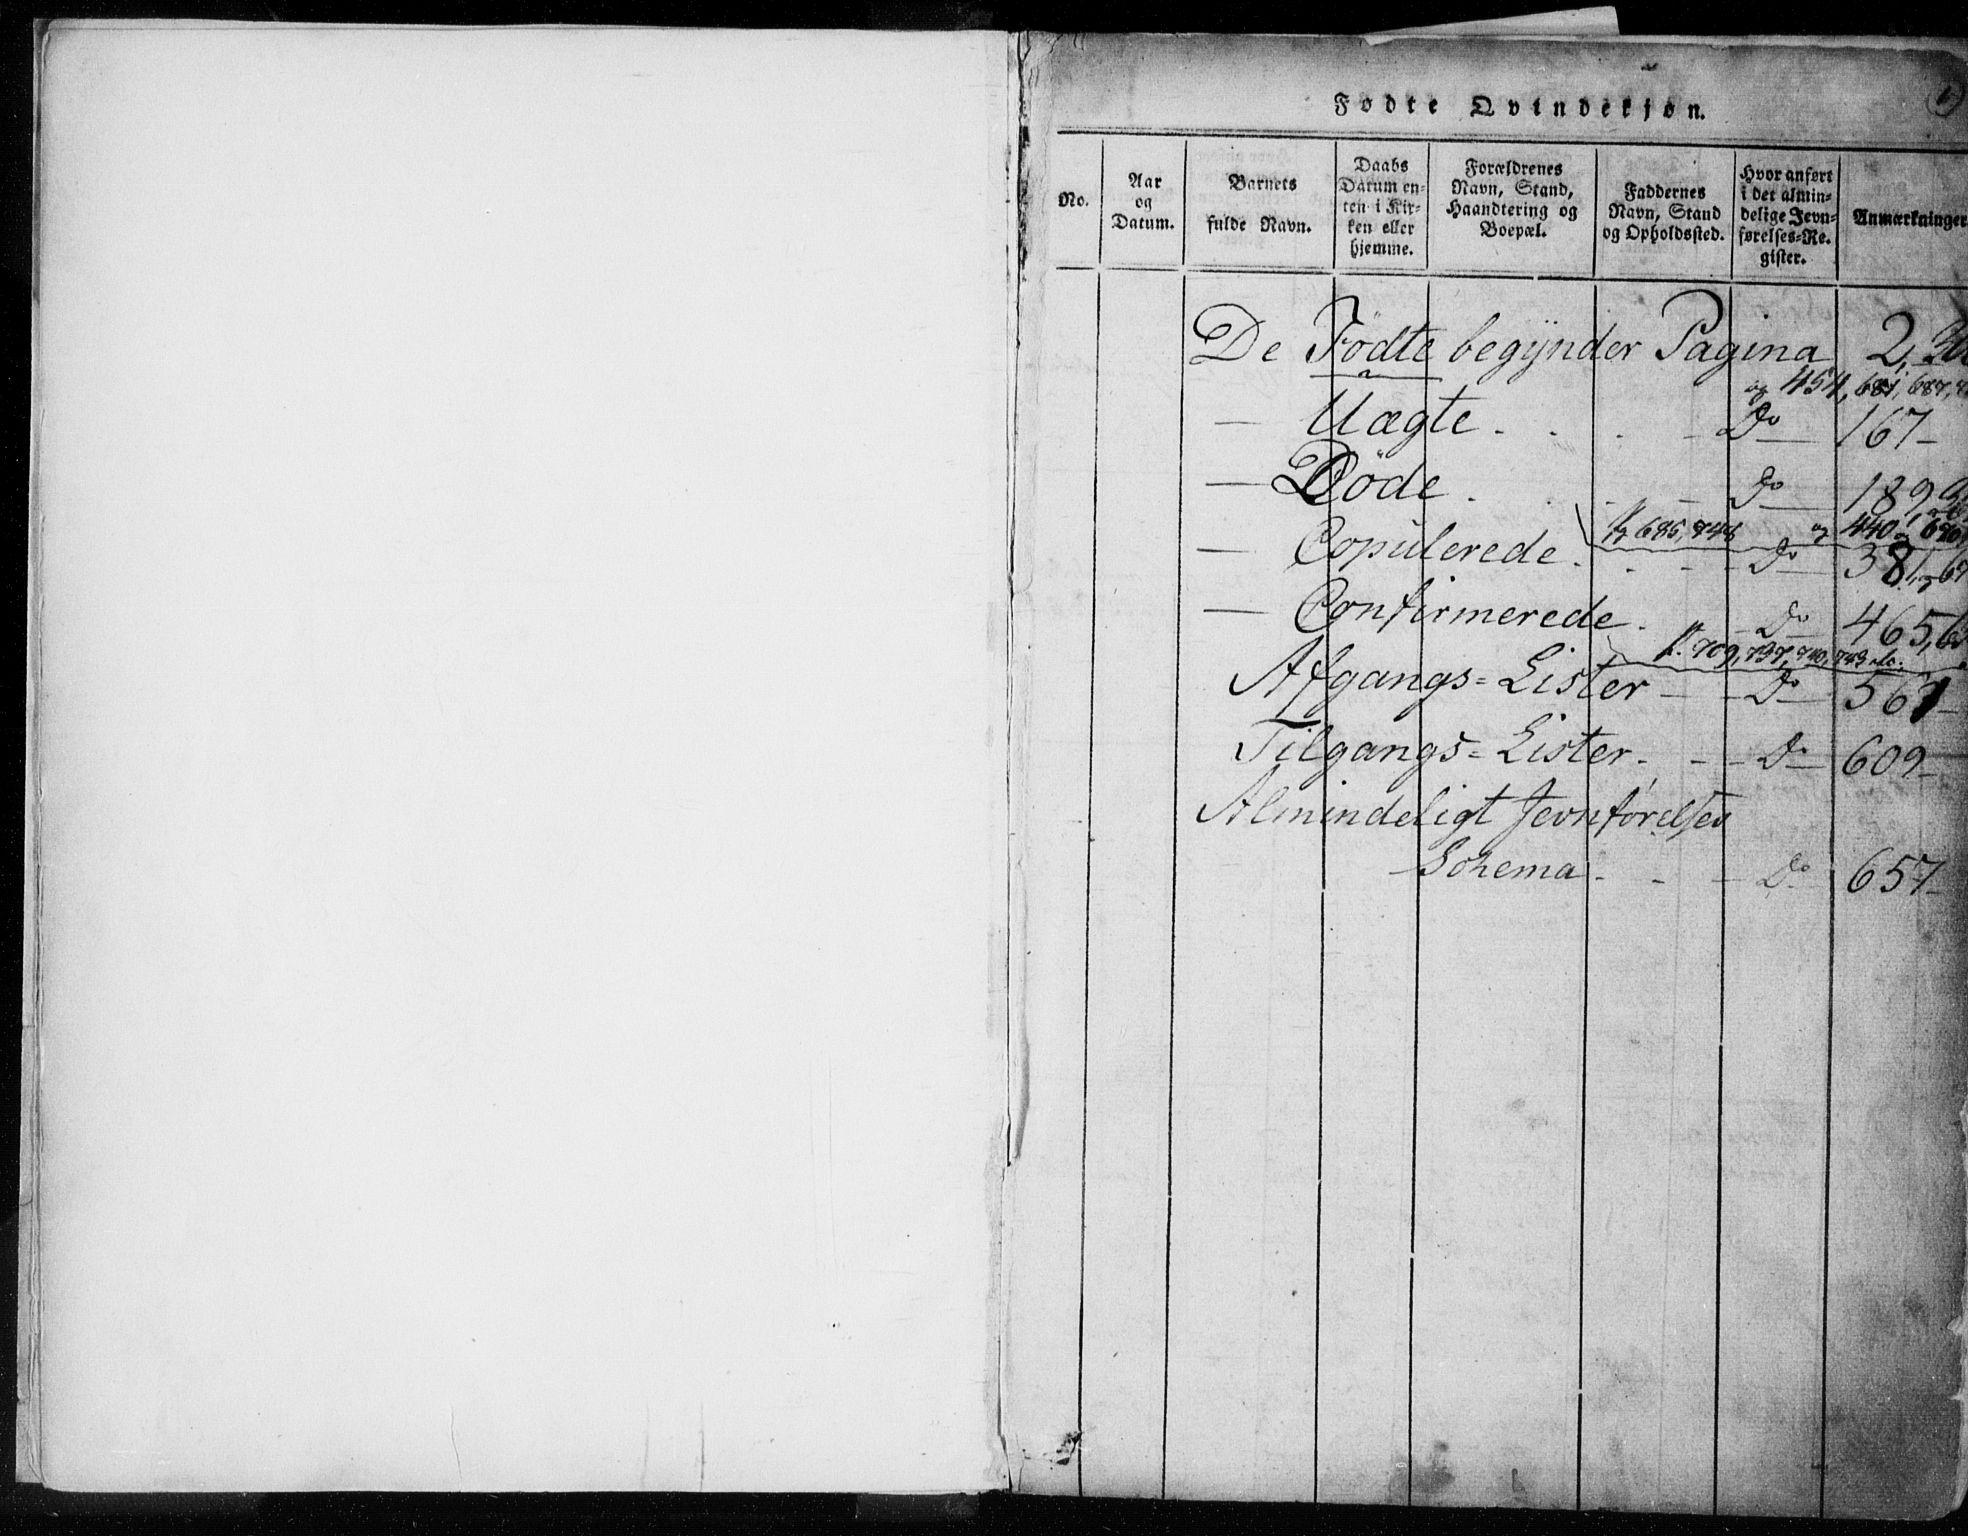 1)
Fødte Qvindekjøn.
No.
Aar
og
Datum.
Barnets
fulde Navn.
Daabs
Datum en-
ten i Kir-
ken eller
hjemme.
Forældrenes
Navn, Stand,
Haandtering og
Boepæl.
Faddernes
Navn, Stand
og Opholdssted.
Hvor anført
i det almin-
delige Jevn-
førelses-Re-
gister.
Anmærkninger
De Fødte begynder Pagina 2,
og 454, 681, 687,
— Uægte . . . . - Do 167-
— Døde . . . - Do 189,
p 685, 748 og 440,
— Copulerede . . . - - Do 381,
— Confirmerede . - Do 465,
p. 709, 737, 740, 743 etc.
Afgangs=Lister - - - Do 561-
Tilgangs=Lister. - - - Do 609-
Almindeligt Jevnførelses
Schema. - - - Do 657-